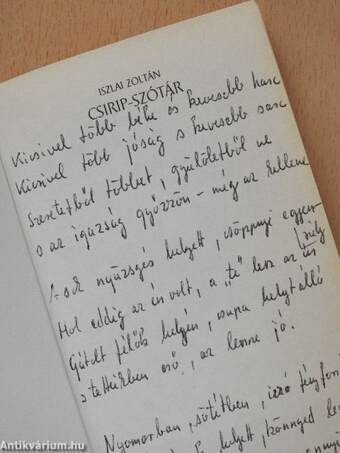 ISZLAI ZOLTÁN
CSIRIP-SZÓTÁR
Kicsivel több béke és kevesebb harc
Kicsivel több jóság s kevesebb sarc
Szeretetből többet, gyűlöletből ne
s az igazság győzzön - még az kellene
A sok nyüzsgés helyett, csöppnyi egyen
súly
Hol eddig az én volt, a "te" lesz az úr
Gátolt félők helyén, csupa helytálló
s tetteikben erő, az lenne jó.
Nyomorban, sötétben, izzó fényforr
helyett, könnyed len
Antikvárium.hu
antikvarium.hu